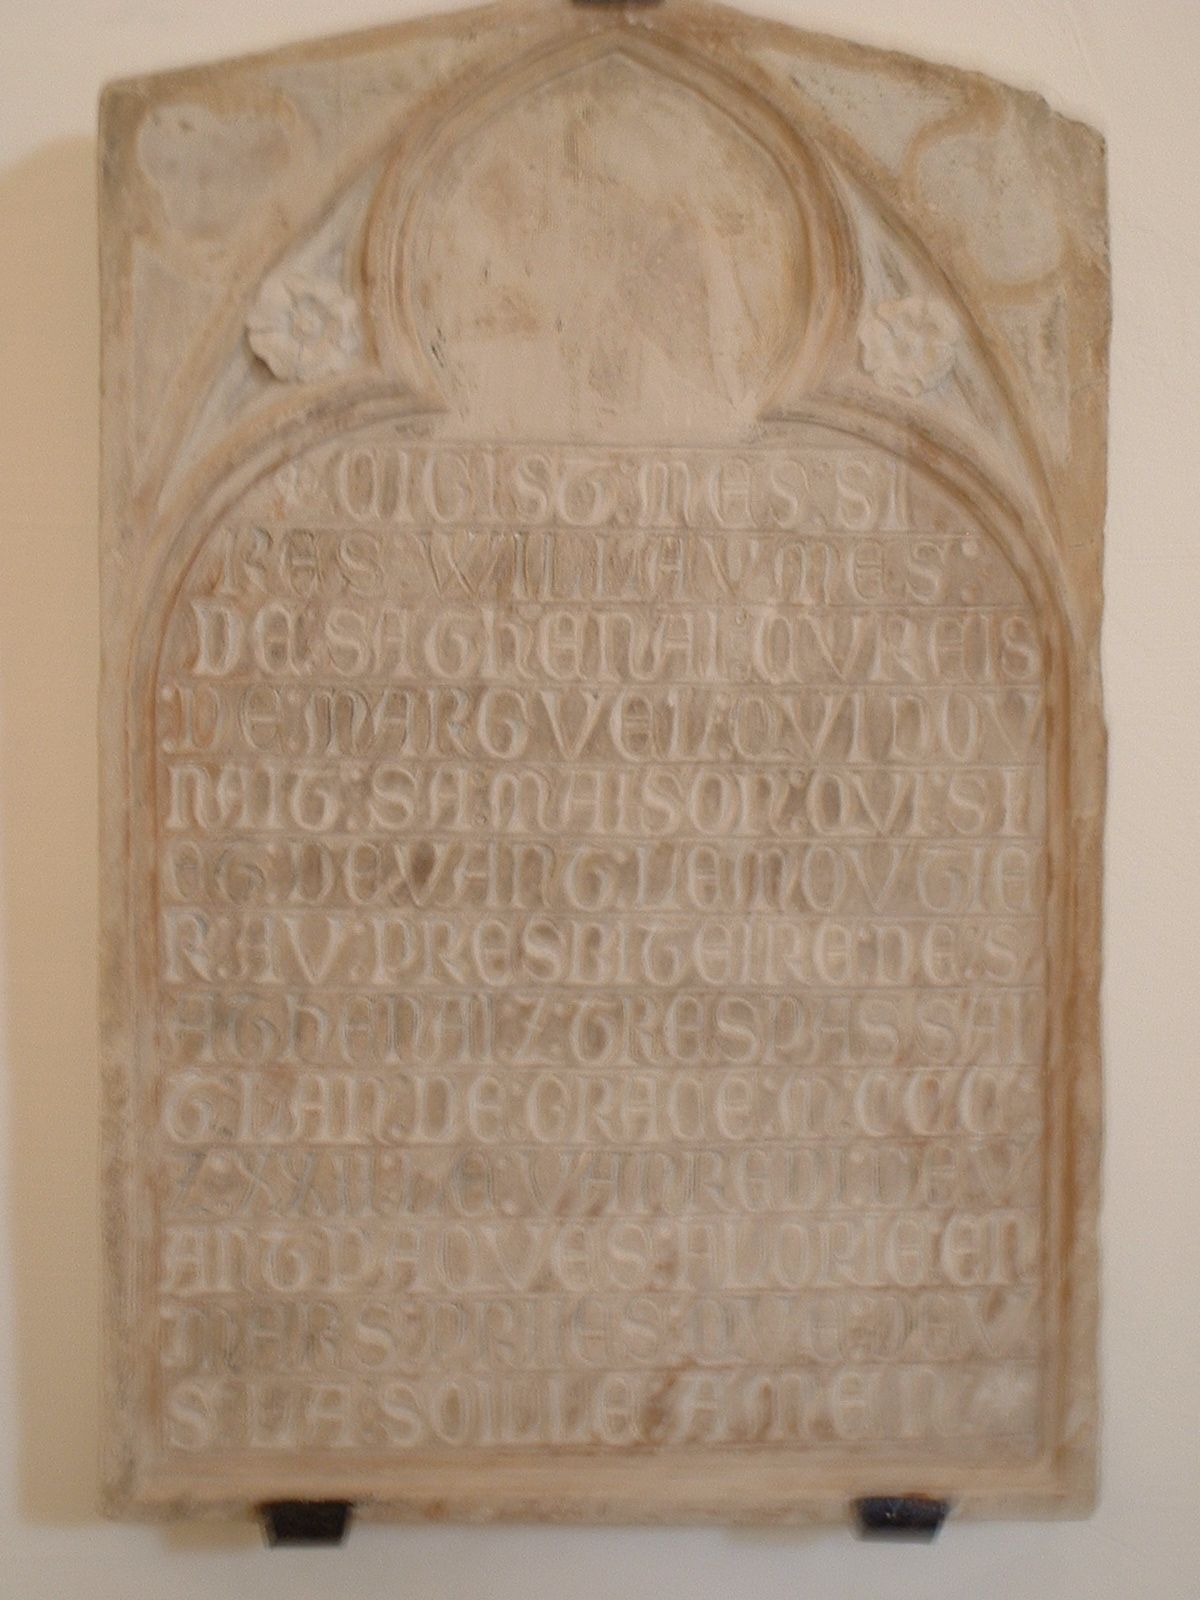 + CI GIST : MES : SI
RES WILLAVMES :
DE : SATHENAI : CVREIS
: DE : MARGVEL : QVI DOV
NAIT : SA : MAISON : QVI : SI
ET : DEVANT : LE MOVTIE
R : AV : PRESBITEIRE : DE : S
ATHENAI Z : TRESPASSAI
T LAN DE : GRACE : M : CCC :
Z XXII : LE : VANREDI : DEV
ANT PAQVES : FLORIE EN
MARS : PRIIES : QVE : DEV
S : LA : SOILLE : AMEN +